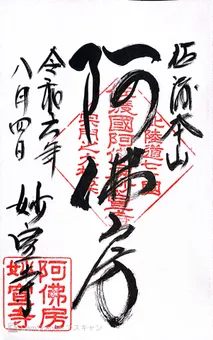 佐渡本山
阿佛房
令和六年
八月四日
妙宣寺
北陸道七ヶ國
佐渡國阿佛房妙宣寺
阿佛房
妙宣寺
スキャン